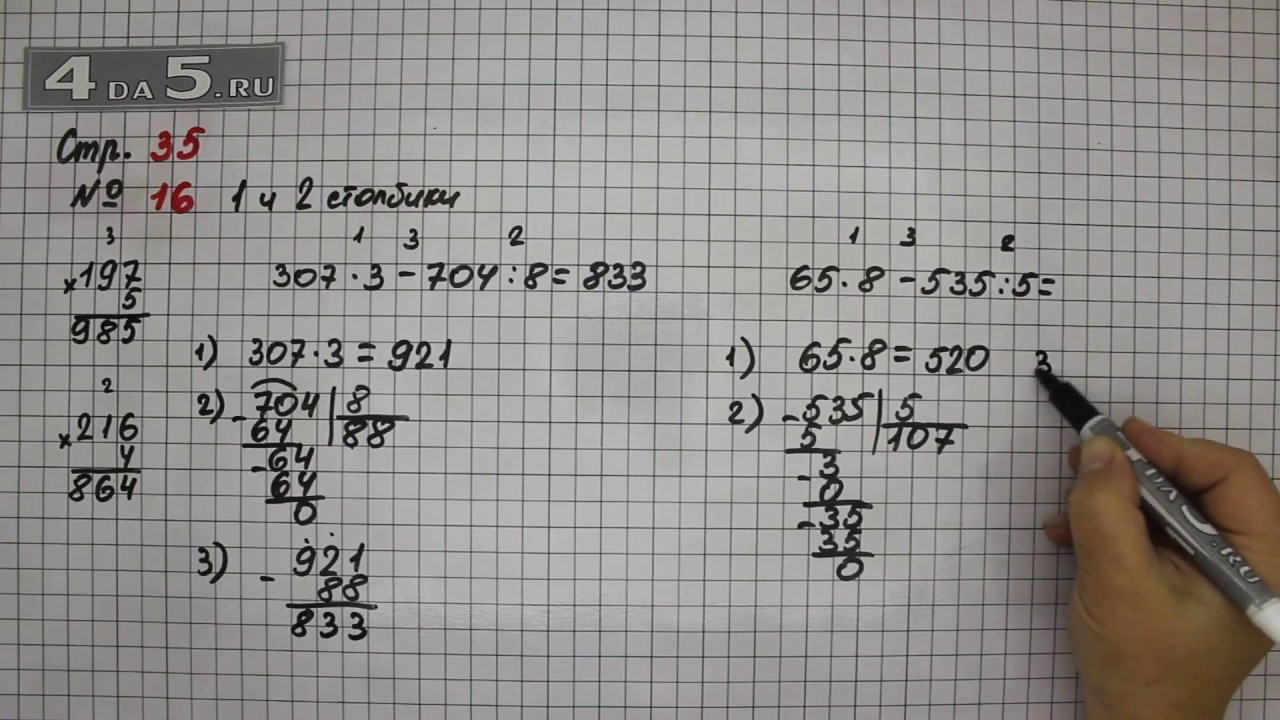 4 DA 5.RU
Стр. 35
№ 16 1 и 2 столбики
3
×197
5
985
2
×216
4
864
1 3 2
307·3-704:8=833
1) 307·3=921
2) -704|8
64 88
-64
64
0
3) -921
88
833
1 3 2
65·8-535:5=
1) 65·8=520
2) -535|5
5 107
-3
0
-35
35
0
3
DA 5.RU